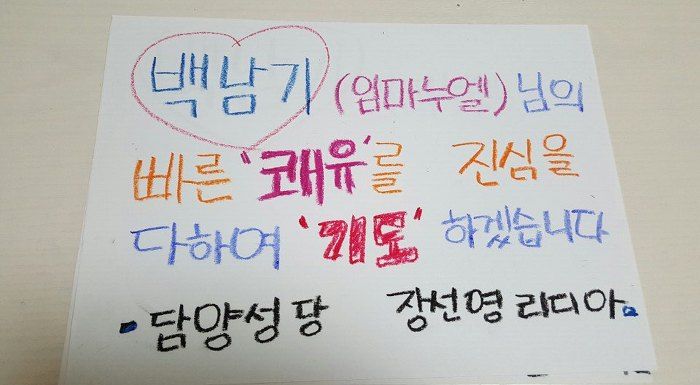 백남기 (임마누엘) 님의
빠른 '쾌유'를 진심을
다하여 '기도' 하겠습니다
· 담양성당 장선영 리디아.